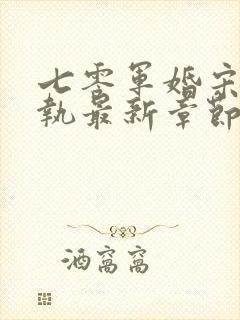 七零军婚宋
执最新章节
酒窝窝